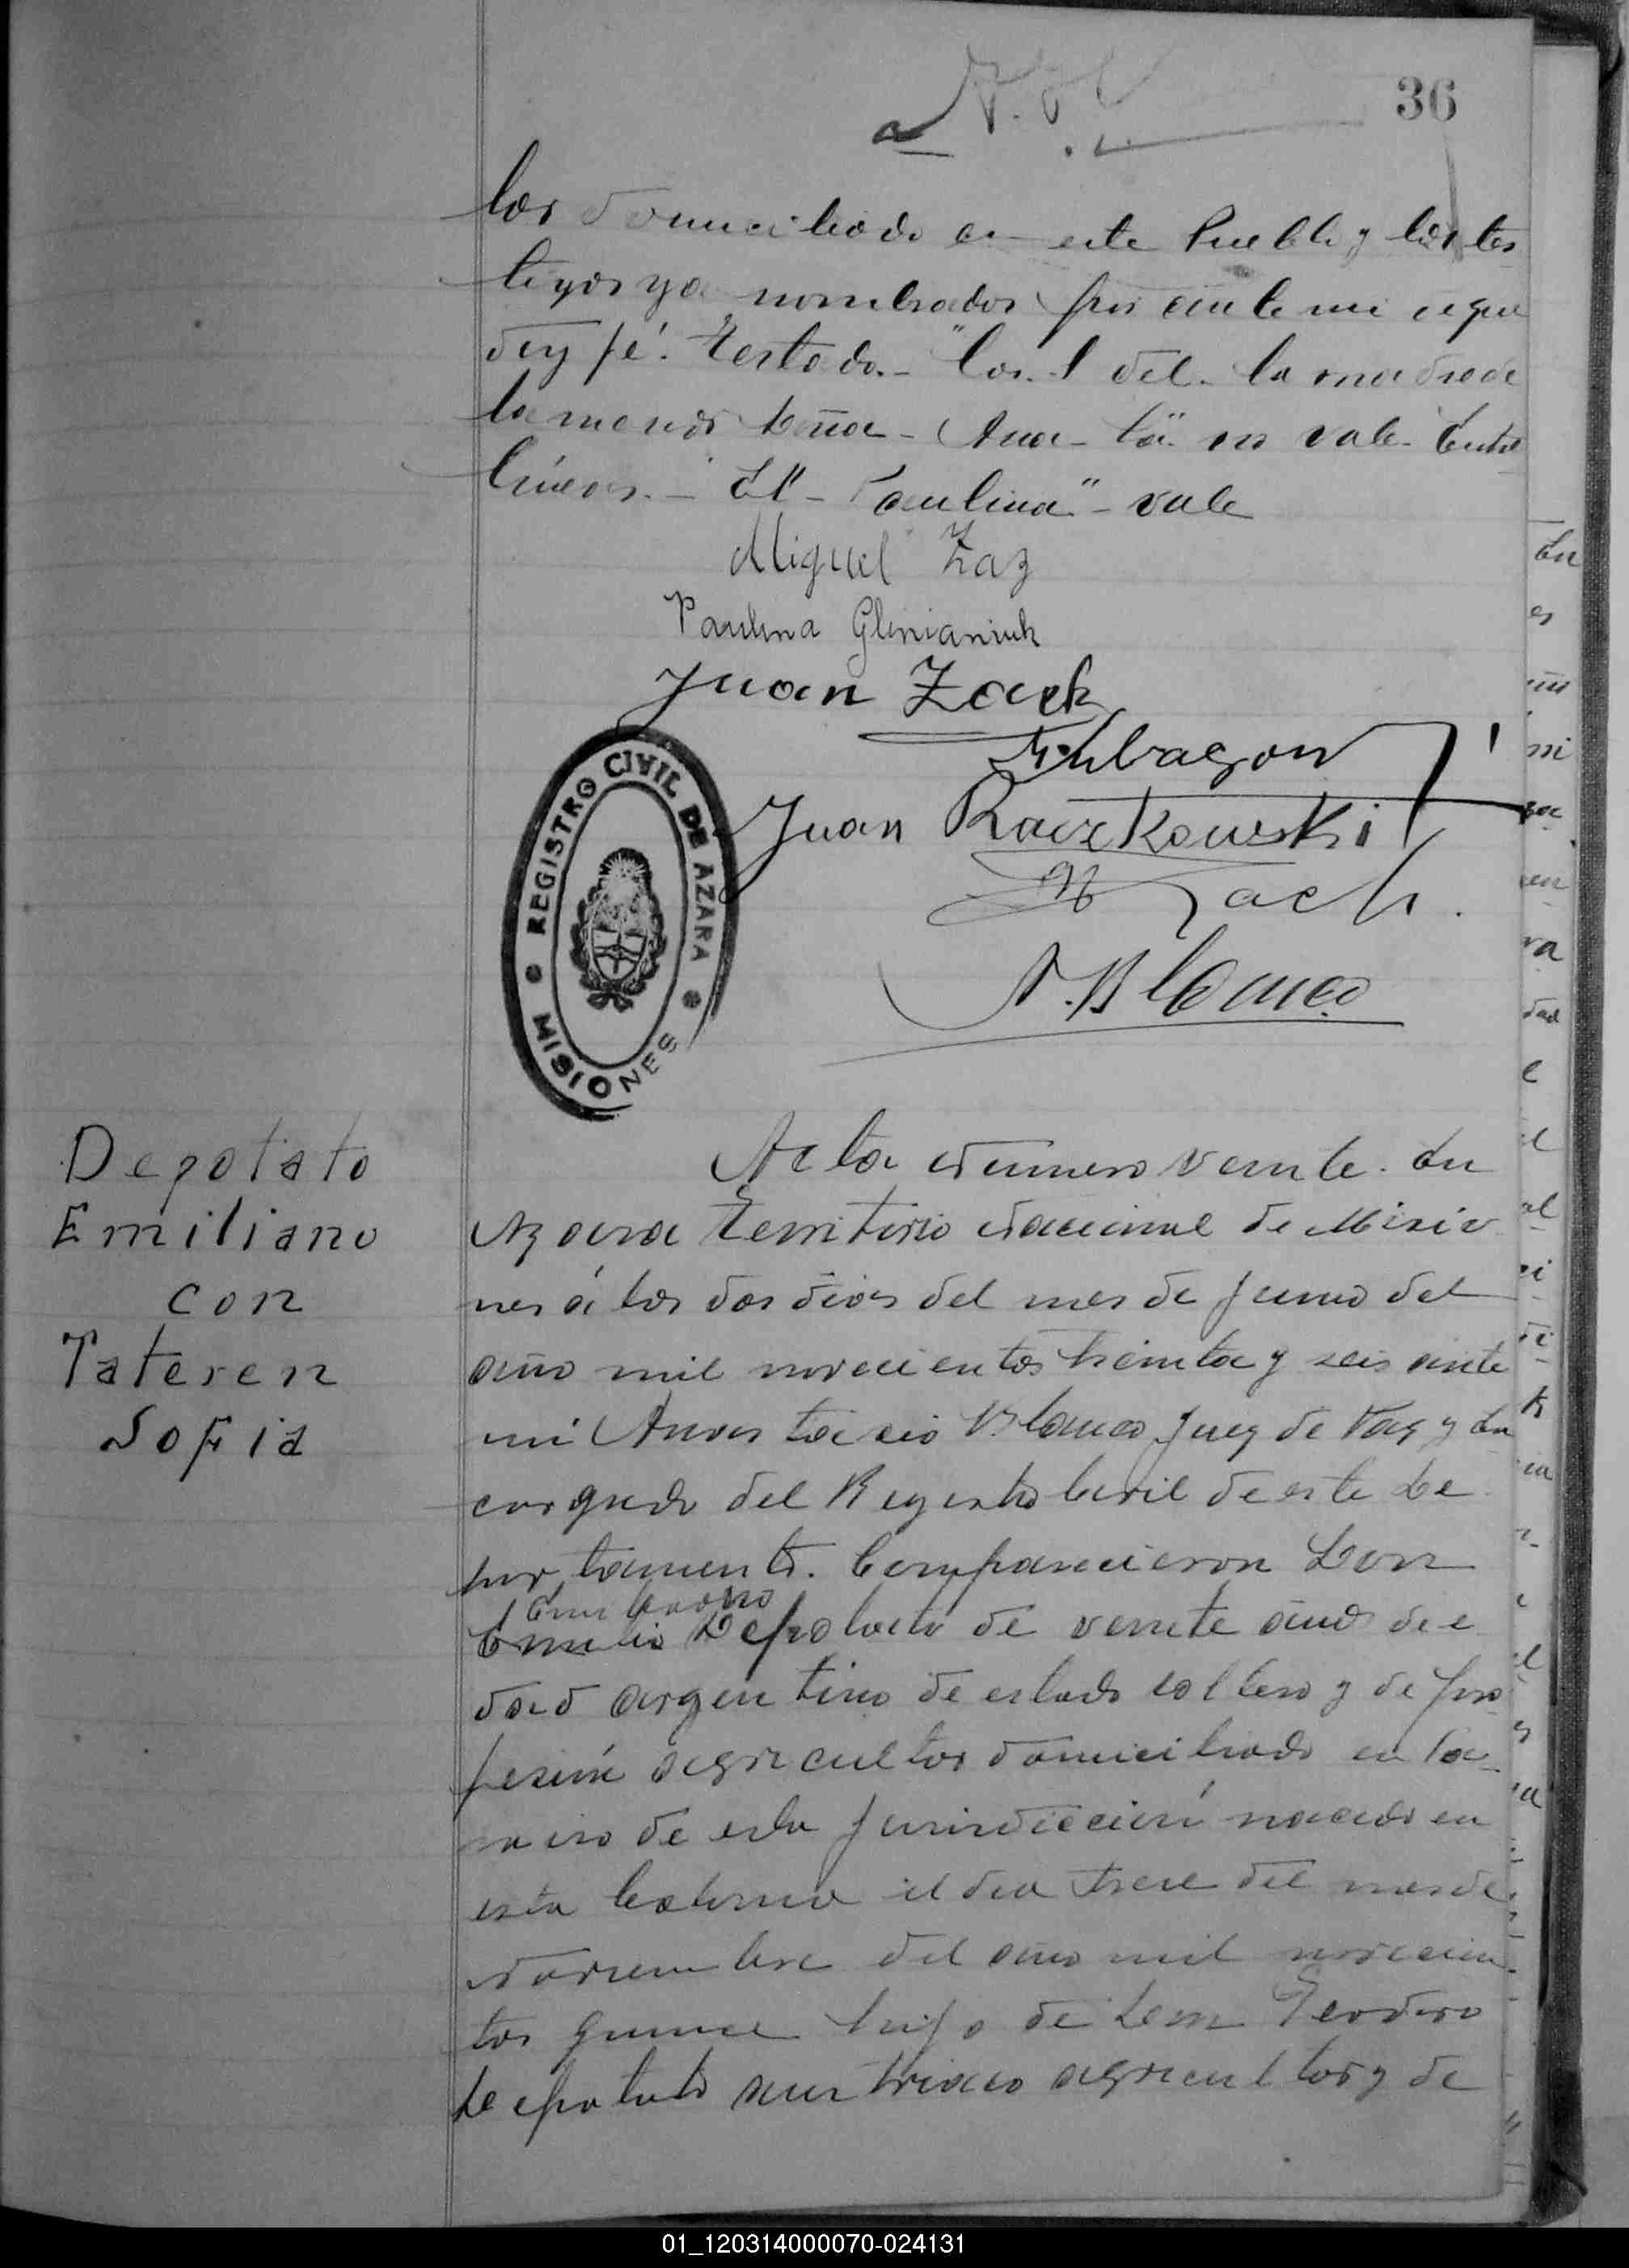 36
los domiciliado en este Pueblo y los tes
tigos ya nombrados por ante mi que
doy fé. Testado.- "los. l del. la madre de
la menor Doña - Ana - la" no vale. Entre
líneas.- El - Paulina" - vale
Miguel Zaz
Paulina Glinianiuk
Juan Zack
Juan Raczkowski
Zach.
A. Blanco
REGISTRO CIVIL DE AZARA
MISIONES
Depotato
Emiliano
con
Tateren
Sofia
Acta Número veinte. En
Azara Territorio Nacional de Misio
nes á los dos dias del mes de Junio del
año mil novecientos treinta y seis ante
mi Anastacio Blanco Juez de Paz y En
cargado del Registro Civil de este De
partamento. Comparecieron Don
Emiliano
Emilio Depotato de veinte años de e
dad argentino de estado soltero y de pro
fesión agricultor domiciliado en
de esta Jurisdicción nacido en
esta Colonia el dia trece del mes de
Noviembre del año mil novecien
tos quince hijo de Don Teodoro
Depotato austriaco agricultor y de
01_120314000070-024131